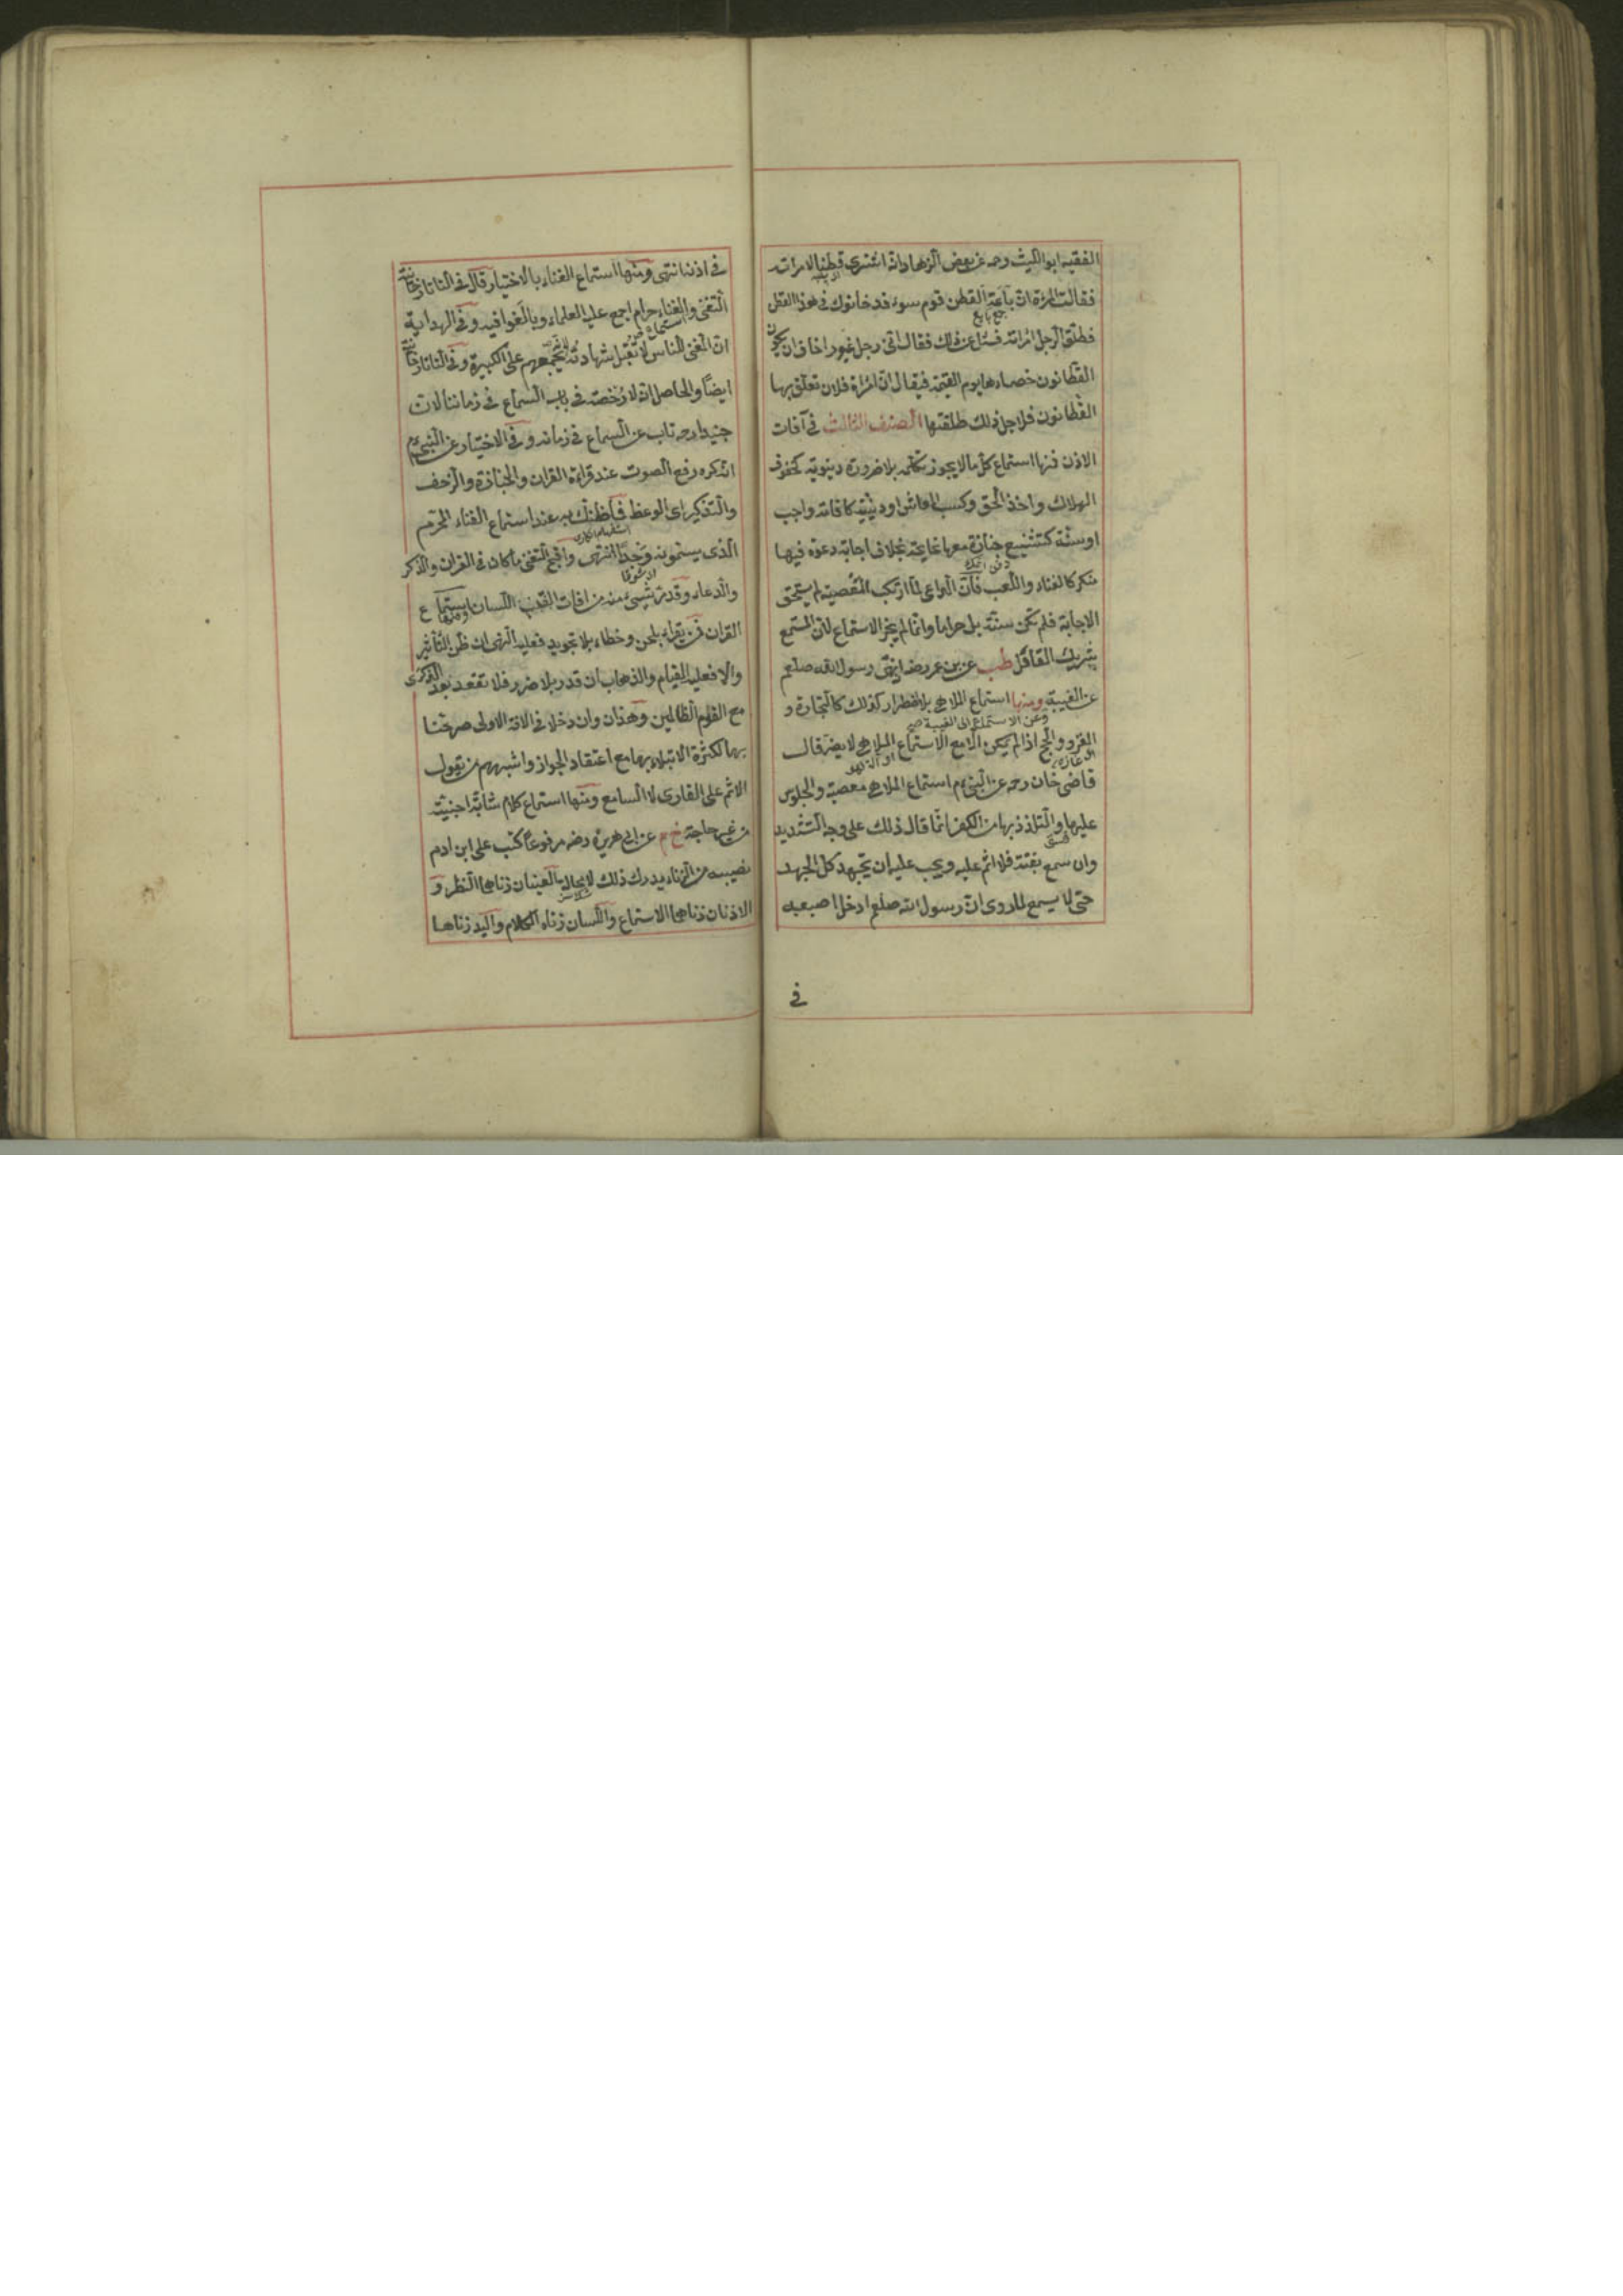 الفقيه ابو الليث رحه عن بعض الزهاد انه اشترى قطنا لامراته
فقالت المرءة ان باعة القطن قوم سوء قد خانوك فى هذا القطن
جمع بايع
فطلق الرجل امراته فسئل عن ذلك فقال انى رجل غيور اخاف ان يكون
القطانون خصماءها يوم القيمة فيقال ان امراة فلان تعلق بها
القطانون فلاجل ذلك طلقتها الصنف الثالث فى آفات
الاذن فمنها استماع كل ما لا يجوز تكلمه بلا ضرورة دنيوية كخوف
الهلاك واخذ الحق وكسب المعاش او دينية كاقامة واجب
او سنة كتشييع جنازة معها نايحة بخلاف اجابة دعوة فيها
منكر كالغناء واللعب فان الداعى لما ارتكب المعصية لم يستحق
الاجابة فلم تكن سنة بل حراما وانما لم يجز الاستماع لان المستمع
شريك القائل طب عن بن عمر رضه انه نهى رسول الله صلعم
عن الغيبة ومنها استماع الملاهى بلا اضطرار كذلك كالتجارة و
وعن الاستماع الى الغيبة صح
الغزو والحج اذا لم يكن الا مع الاستماع الملاهى لا يضر قال
قاضى خان رحه عن النبى ءم استماع الملاهى معصية والجلوس
عليها والتلذذ بها من الكفر انما قال ذلك على وجه التشديد
فسق
وان سمع بغتة فلا اثم عليه ويجب عليه ان يجتهد كل الجهد
حتى لا يسمع لما روى ان رسول الله صلعم ادخل اصبعيه
فى
فى اذنه انتهى ومنها استماع الغناء بالاختيار قال فى التاتارخانية
التغنى والغناء حرام اجمع عليه العلماء وبالغوا فيه وفى الهداية
ان المغنى للناس لا تقبل شهادته لانه يجمعهم على الكبيرة وفى التاتارخانية
ايضا والحاصل انه لا رخصة فى باب السماع فى زماننا لان
جنيدا رحه تاب عن السماع فى زمانه وفى الاختيار عن النبى ءم
انه كره رفع الصوت عند قراءة القران والجنازة والزحف
والتذكير اى الوعظ فما ظنك به عند استماع الغناء المحرم
استفهام انكارى
الذى يسمونه وجدا انتهى واقبح التغنى ما كان فى القران والذكر
والدعاء وقد مر شيىء منه من افات اللسان ومنها استماع
القران ممن يقراء بلحن وخطاء بلا تجويد فعليه النهى ان ظن التأثير
والا فعليه القيام والذهاب ان قدر بلا ضرر فلا تقعد بعد الذكرى
مع القوم الظالمين وهذان وان دخلا فى الافة الاولى صرحنا
بهما لكثرة الابتلاء بهما مع اعتقاد الجواز واشبههم من يقول
الاثم على القارى لا السامع ومنها استماع كلام شابة اجنبية
من غير حاجة خ م عن ابى هريرة رضه مرفوعا كتب على ابن ادم
نصيبه من الزناء يدرك ذلك لا محالة العينان زناهما النظر و
الاذنان زناهما الاستماع واللسان زناه الكلام واليد زناها